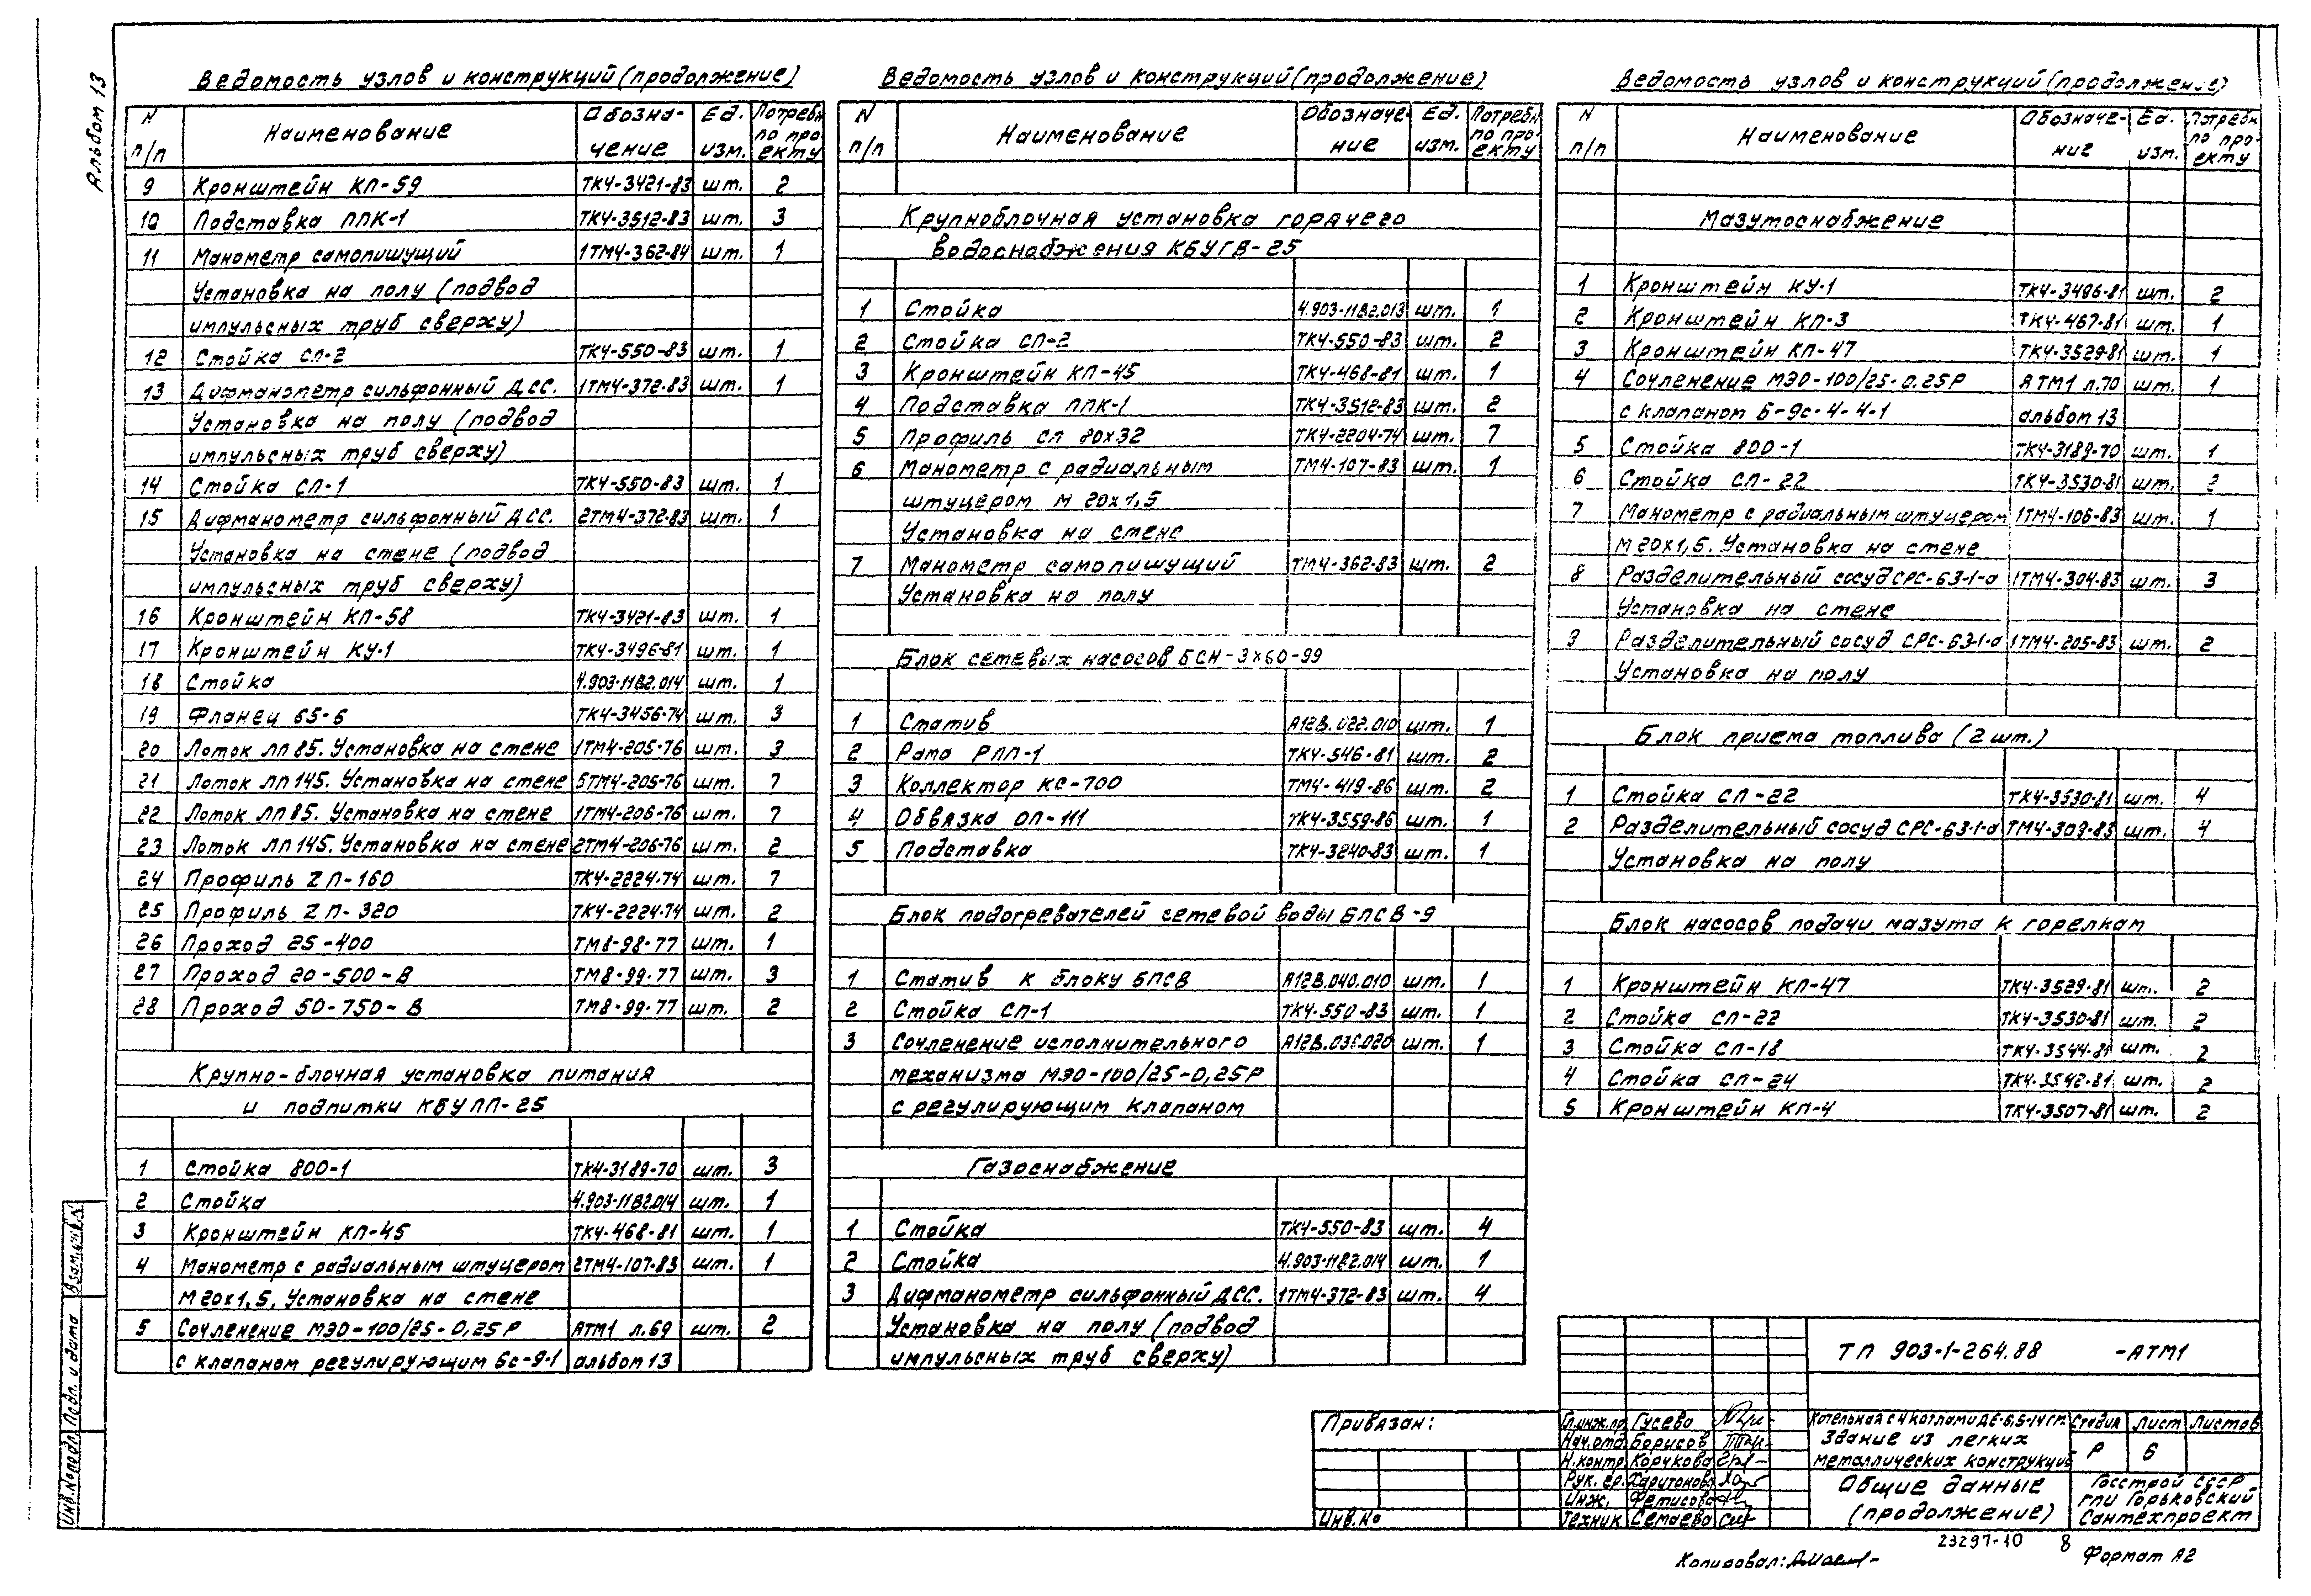 Альбом 13
Ведомость узлов и конструкций (продолжение)
N п/п Наименование Обозна-чение Ед. изм. Потребн. по про-екту
9 Кронштейн КП-59 ТК4-3421-83 шт. 2
10 Подставка ППК-1 ТК4-3512-83 шт. 3
11 Манометр самопишущий 1ТМ4-362-84 шт. 1
Установка на полу (подвод
импульсных труб сверху)
12 Стойка СП-2 ТК4-550-83 шт. 1
13 Дифманометр сильфонный ДСС. 1ТМ4-372-83 шт. 1
Установка на полу (подвод
импульсных труб сверху)
14 Стойка СП-1 ТК4-550-83 шт. 1
15 Дифманометр сильфонный ДСС. 2ТМ4-372-83 шт. 1
Установка на стене (подвод
импульсных труб сверху)
16 Кронштейн КП-58 ТК4-3421-83 шт. 1
17 Кронштейн КУ-1 ТК4-3496-81 шт. 1
18 Стойка 4.903-11В2.014 шт. 1
19 Фланец 65-6 ТК4-3456-74 шт. 3
20 Лоток ЛП85. Установка на стене 1ТМ4-205-76 шт. 3
21 Лоток ЛП145. Установка на стене 5ТМ4-205-76 шт. 7
22 Лоток ЛП85. Установка на стене 1ТМ4-206-76 шт. 7
23 Лоток ЛП145. Установка на стене 2ТМ4-206-76 шт. 2
24 Профиль ZП-160 ТК4-2224-74 шт. 7
25 Профиль ZП-320 ТК4-2224-74 шт. 2
26 Проход 25-400 ТМ8-98-77 шт. 1
27 Проход 20-500-В ТМ8-99-77 шт. 3
28 Проход 50-750-В ТМ8-99-77 шт. 2
Крупно-блочная установка питания
и подпитки КБУПП-25
1 Стойка 800-1 ТК4-3189-70 шт. 3
2 Стойка 4.903-11В2.014 шт. 1
3 Кронштейн КП-45 ТК4-468-81 шт. 1
4 Манометр с радиальным штуцером 2ТМ4-107-83 шт. 1
М20х1,5. Установка на стене
5 Сочленение МЭО-100/25-0,25Р АТМ1 л.69 шт. 2
с клапаном регулирующим 6с-9-1 альбом 13
Ведомость узлов и конструкций (продолжение)
N п/п Наименование Обозначе-ние Ед. изм. Потребн. по про-екту
Крупноблочная установка горячего
водоснабжения КБУГВ-25
1 Стойка 4.903-11В2.013 шт. 1
2 Стойка СП-2 ТК4-550-83 шт. 2
3 Кронштейн КП-45 ТК4-468-81 шт. 1
4 Подставка ППК-1 ТК4-3512-83 шт. 2
5 Профиль СП 80х32 ТК4-2204-74 шт. 7
6 Манометр с радиальным ТМ4-107-83 шт. 1
штуцером М 20х1,5
Установка на стене
7 Манометр самопишущий ТМ4-362-83 шт. 2
Установка на полу
Блок сетевых насосов БСН-3х60-99
1 Статив А12В.022.010 шт. 1
2 Рама РПП-1 ТК4-546-81 шт. 2
3 Коллектор КС-700 ТМ4-419-86 шт. 2
4 Обвязка ОП-111 ТК4-3559-86 шт. 1
5 Подставка ТК4-3240-83 шт. 1
Блок подогревателей сетевой воды БПСВ-9
1 Статив к блоку БПСВ А12В.040.010 шт. 1
2 Стойка СП-1 ТК4-550-83 шт. 1
3 Сочленение исполнительного шт. 1
механизма МЭО-100/25-0,25Р
с регулирующим клапаном
Газоснабжение
1 Стойка ТК4-550-83 шт. 4
2 Стойка 4.903-11В2.014 шт. 1
3 Дифманометр сильфонный ДСС. 1ТМ4-372-83 шт. 4
Установка на полу (подвод
импульсных труб сверху)
Ведомость узлов и конструкций (продолжение)
N п/п Наименование Обозначе-ние Ед. изм. Потребн. по про-екту
Мазутоснабжение
1 Кронштейн КУ-1 ТК4-3496-81 шт. 2
2 Кронштейн КП-3 ТК4-467-81 шт. 1
3 Кронштейн КП-47 ТК4-3529-81 шт. 1
4 Сочленение МЭО-100/25-0.25Р АТМ1 л.70 шт. 1
с клапаном Б-9с-4-4-1 альбом 13
5 Стойка 800-1 ТК4-3189-70 шт. 1
6 Стойка СП-22 ТК4-3530-81 шт. 2
7 Манометр с радиальным штуцером 1ТМ4-106-83 шт. 1
М20х1,5. Установка на стене
8 Разделительный сосуд СРС-63-1-а 1ТМ4-304-83 шт. 3
Установка на стене
9 Разделительный сосуд СРС-63-1-а 1ТМ4-205-83 шт. 2
Установка на полу
Блок приема топлива (2 шт.)
1 Стойка СП-22 ТК4-3530-81 шт. 4
2 Разделительный сосуд СРС-63-1-а ТМ4-309-83 шт. 4
Установка на полу
Блок насосов подачи мазута к горелкам
1 Кронштейн КП-47 ТК4-3529-81 шт. 2
2 Стойка СП-22 ТК4-3530-81 шт. 2
3 Стойка СП-18 ТК4-3544-81 шт. 2
4 Стойка СП-24 ТК4-3542-81 шт. 2
5 Кронштейн КП-4 ТК4-3507-81 шт. 2
ТП 903-1-264.88 -АТМ1
Привязан:
Инв.No
Гл.инж.пр. Гусева
Нач.отд. Борисов
Н.контр. Корчкова
Рук. гр. Харитонова
Инж. Фетисова
Техник Семаева
Котельная с 4 котлами ДЕ-6,5-14ГМ.
Здание из легких
металлических конструкций
Стадия Лист Листов
Р 6
Общие данные
(продолжение)
Госстрой СССР
ГПИ Горьковский
Сантехпроект
23297-10 8
Копировал:
Формат А2
Инв.No подл. Подп. и дата Взам.инв.N